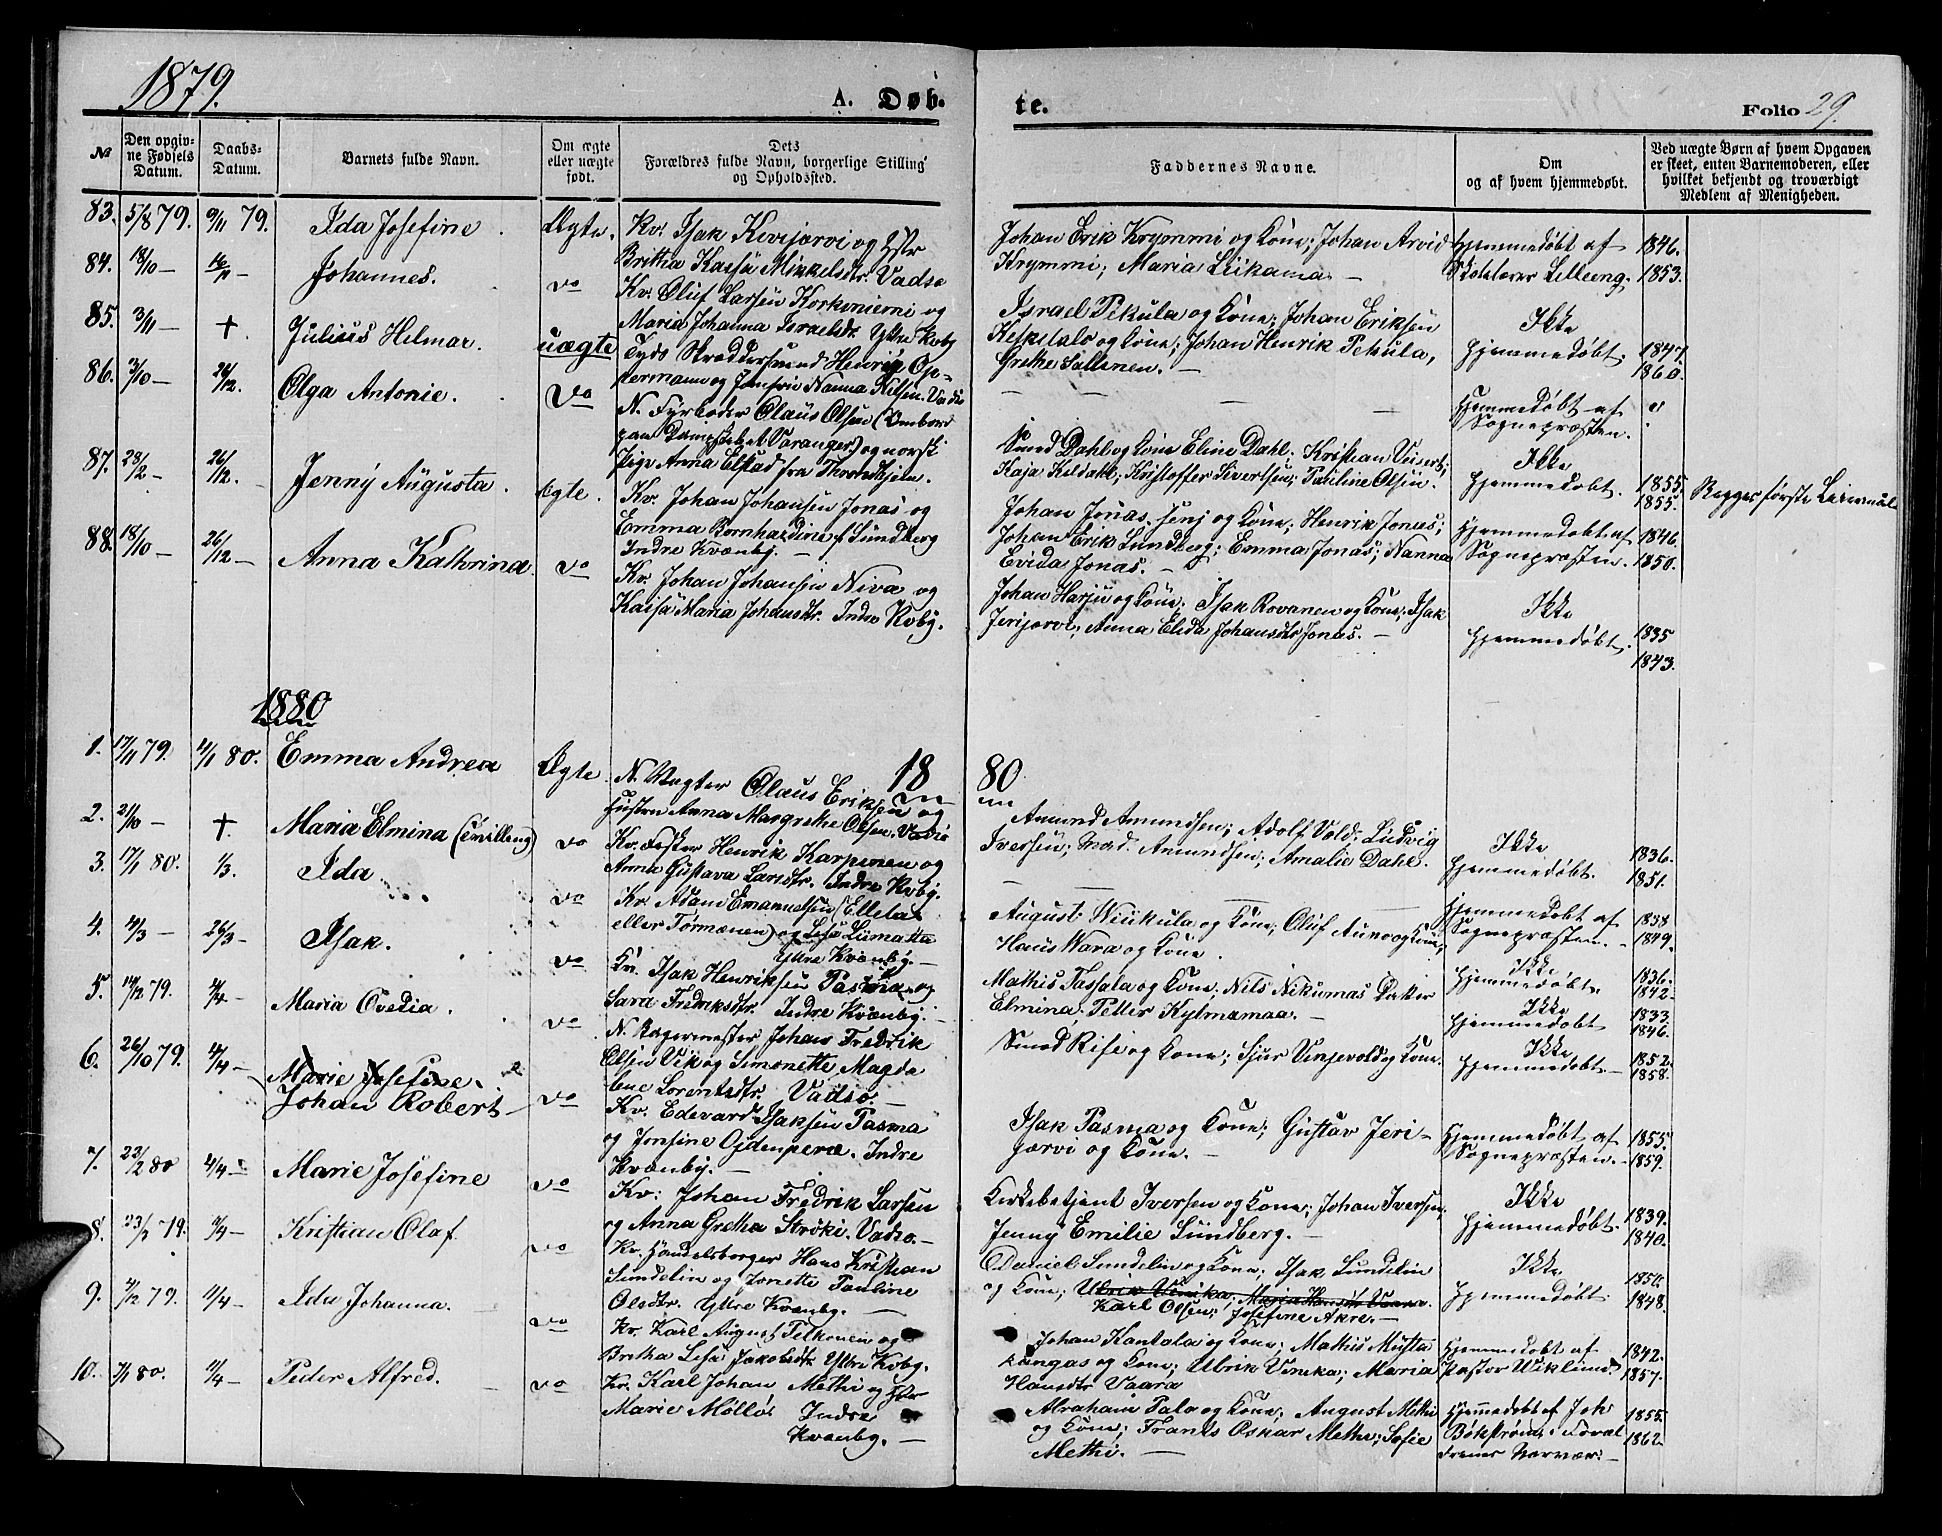 1879.
A. Døb-
te.
Folio 29.
№
Den opgiv-
ne Fødsels
Datum.
Daabs-
Datum.
Barnets fulde Navn.
Om ægte
eller uægte
født.
Dets
Forældres fulde Navn, borgerlige Stilling
og Opholdssted.
Faddernes Navne.
Om
og af hvem hjemmedøbt.
Ved uægte Børn af hvem Opgaven
er skeet, enten Barnemoderen, eller
hvilket bekjendt og troværdigt
Medlem af Menigheden.
83. 5/8 79. 9/11 79. Ida Josefine. Ægte.
Kv. Isak Kivijærvi og Hstr
Britha Kaisa Mikkelsdtr. Vadsø
Johan Erik Krymmi og Kone; Johan Arvid
Krymmi; Maria Liikama —
Hjemmedøbt af
Skolelærer Lilleeng.
1846.
1853.
84. 18/10 — 16/11 — Johannes. do
Kv. Oluf Larsen Korkoniemi og
Maria Johanna Israelsdtr. Yttre Kvby
Israel Pekula og Kone; Johan Eriksen
Keskitalo og Kone; Johan Henrik Pekula,
Grethe Sallinen. —
Ikke
hjemmedøbt.
1847.
1860.
85. 3/11 — † Julius Helmar. uægte
Tydsk Skræddersvend Henrik Op-
permann og Jomfru Nanna Nilsen. Vadsø
Hjemmedøbt af
Sognepræsten.
86. 3/10 — 26/12. Olga Antonie. do
N. Fyrbøder Olaus Olsen (Ombord
paa Dampskibet Varanger) og norsk
Pige Anna Elstad fra Throndhjem.
Smed Dahl og Kone Eline Dahl; Kristian Veisert;
Kaja Kildahl; Kristoffer Sivertsen; Pauline Olsen.
Ikke
hjemmedøbt.
1855
1855.
Begges første Leiermål
87. 28/2 — 26/12. — Jenny Augusta. Ægte.
Kv. Johan Johansen Jonas og
Emma Bernhardine f. Sundberg
Indre Kvænby. —
Johan Jonas, senj og Kone; Henrik Jonas;
Johan Erik Lundberg; Emma Jonas; Nanna
Evida Jonas. —
Hjemmedøbt af
Sognepræsten.
1846.
1850.
88. 18/10 — 26/12 — Anna Kathrina do
Kv. Johan Johansen Niva og
Kaisa Maria Johansdtr. Indre Kvby.
Johan Harju og Kone; Isak Rovanen og Kone; Isak
Jerijærvi; Anna Elida Johansdtr Jonas. —
Ikke
hjemmedøbt.
1835
1843.
1880
18 80
1. 17/11 79. 11/1 80. Emma Andrea Ægte.
N. Vægter Olaus Eriksen og
Hustru Anna Margrethe Olsen, Vadsø
Amund Amundsen; Adolf Vold; Ludvig
Iversen; Mad. Amundsen; Amalie Dahl.
Ikke
hjemmedøbt.
1836.
1851.
2. 21/10 — †. Maria Elmina (Tvilling) do
Kv. Fisker Henrik Karpinen og
Anna Gustava Larsdtr. Indre Kvby.
Hjemmedøbt af
Sognepræsten. —
1838
1849.
3. 17/1 80. 1/3. Ida do
Kv. Adam Emanuelsen (Ellela
eller Törmænen) og Lisa Liimatta
Yttre Kvænby. —
August Niikula og Kone; Oluf Auno og Kone;
Hans Wara og Kone.
Ikke
hjemmedøbt.
1836.
1842.
4. 4/3 — 26/3 — Isak. do
Kv. Isak Henriksen Pasma og
Sara Fredriksdtr. Indre Kvænby. —
Mathis Tassala og Kone; Nils Nikumas Datter
Elmina; Petter Kylmamaa. —
Ikke
hjemmedøbt
1833
1846.
5. 14/12 79. 4/4 — Maria Ovedia. do
N. Bagermester Johan Fredrik
Olsen Vik og Simonette Magda
lene Lorentsdtr. Vadsø. —
Smed Rise og Kone; Sjur Vinjevold og Kone.
Ikke
hjemmedøbt —
1852.
1858.
6. 26/10 79. 4/4 — Marie Josefine.
Johan Robert — do
Kv. Edevard Isaksen Pasma
og Jonsine Ojdenperæ. Indre
Kvænby. —
Isak Pasma og Kone; Gustav Jeri-
jærvi og Kone. —
Hjemmedøbt af
Sognepræsten. —
1855.
1859.
7. 23/2 80 4/4 — Marie Josefine do
Kv. Johan Fredrik Larsen
og Anna Gretha Ströki. Vadsø. —
Kirkebetjent Iversen og Kone; Johan Iversen;
Jenny Emilie Sundberg. —
Ikke
hjemmedøbt.
1839.
1840.
8. 23/2 79. 4/4 — Kristian Olaf do
Kv. Handelsborger Hans Kristian
Sundelin og Jonette Pauline
Olsdtr. Yttre Kvænby. —
Daniel Sundelin og Kone; Isak Sundelin
og Kone; Ulrik Vinika; Maria Hansdtr Vaara.
Karl Olsen; Josefine Akre. —
Ikke
hjemmedøbt.
1850.
1848.
9. 4/12 79. 11/4 — Ida Johanna. do
Kv. Karl August Pelkonen og
Bretha Lisa Jakobsdtr. Yttre Kvby.
Johan Kantola og Kone; Mathis Musta
kangas og Kone; Ulrik Vinika; Maria
Hansdtr Vaara
Hjemmedøbt af
Pastor Wiklund.
1842.
1857.
10. 7/1 80. 11/4 — Peder Alfred. — do
Kv. Karl Johan Methi og Hstr
Marie Mölló Indre
Kvænby. —
Abraham Palo og Kone; August Methi
og Kone; Frants Oskar Methi; Sofie
Methi. —
Hjemmedøbt af Joh
1855.
1862.